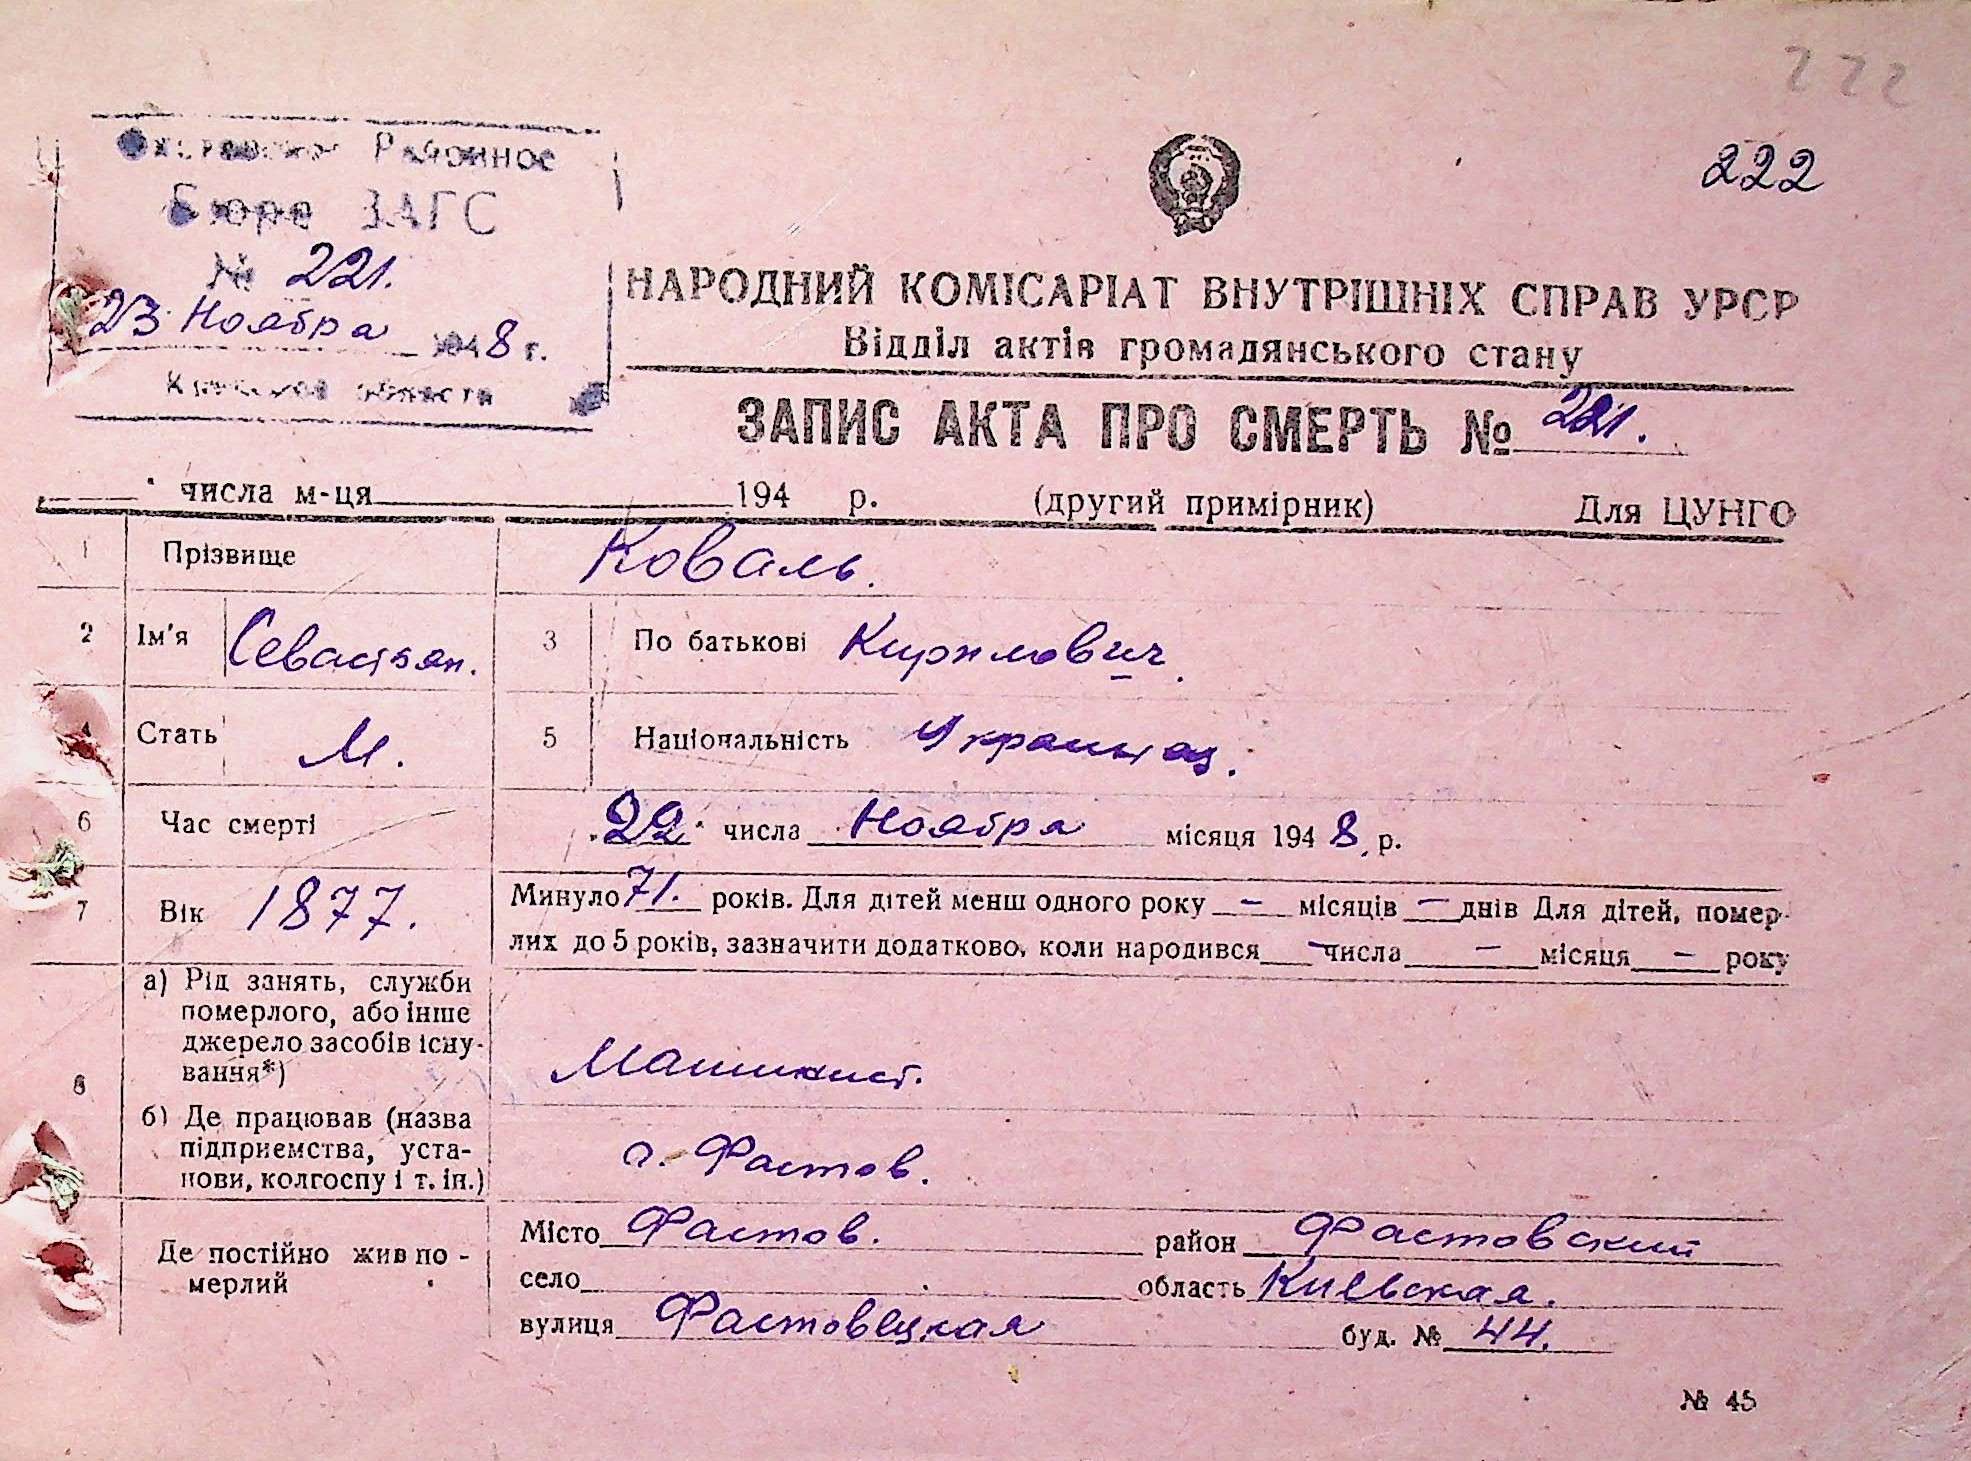 222
222
Районное
Бюро ЗАГС
№ 221.
23 Ноября 1948 г.
области
НАРОДНИЙ КОМІСАРІАТ ВНУТРІШНІХ СПРАВ УРСР
Відділ актів громадянського стану
ЗАПИС АКТА ПРО СМЕРТЬ № 221.
числа м-ця 194 р. (другий примірник) Для ЦУНГО
1 Прізвище Коваль.
2 Ім'я Севастьян. 3 По батькові Кирилович.
4 Стать М. 5 Національність Украинец.
6 Час смерті 22 числа Ноября місяця 1948 р.
7 Вік 1877. Минуло 71. років. Для дітей менш одного року — місяців — днів Для дітей, помер-
лих до 5 років, зазначити додатково, коли народився — числа — місяця — року
8 а) Рід занять, служби
померлого, або інше
джерело засобів існу-
вання*)
Машинист.
б) Де працював (назва
підприємства, уста-
нови, колгоспу і т. ін.)
г. Фастов.
Де постійно жив по-
мерлий
Місто Фастов. район Фастовский
село область Киевская.
вулиця Фастовецкая буд. № 44.
№ 45